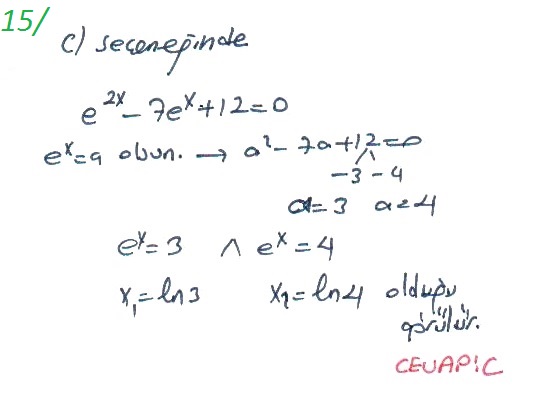 15/
C) seçeneğinde
e^2x - 7e^x + 12 = 0
e^x = a olsun. → a² - 7a + 12 = 0
-3 -4
a = 3 a = 4
e^x = 3 ∧ e^x = 4
x₁ = ln3 x₂ = ln4 olduğu
görülür.
CEVAP: C